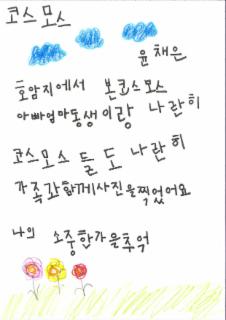 코스모스
윤채은
호암지에서 본코스모스
아빠엄마동생이랑 나란히
코스모스들도 나란히
가족과함께사진을찍었어요
나의 소중한가을추억